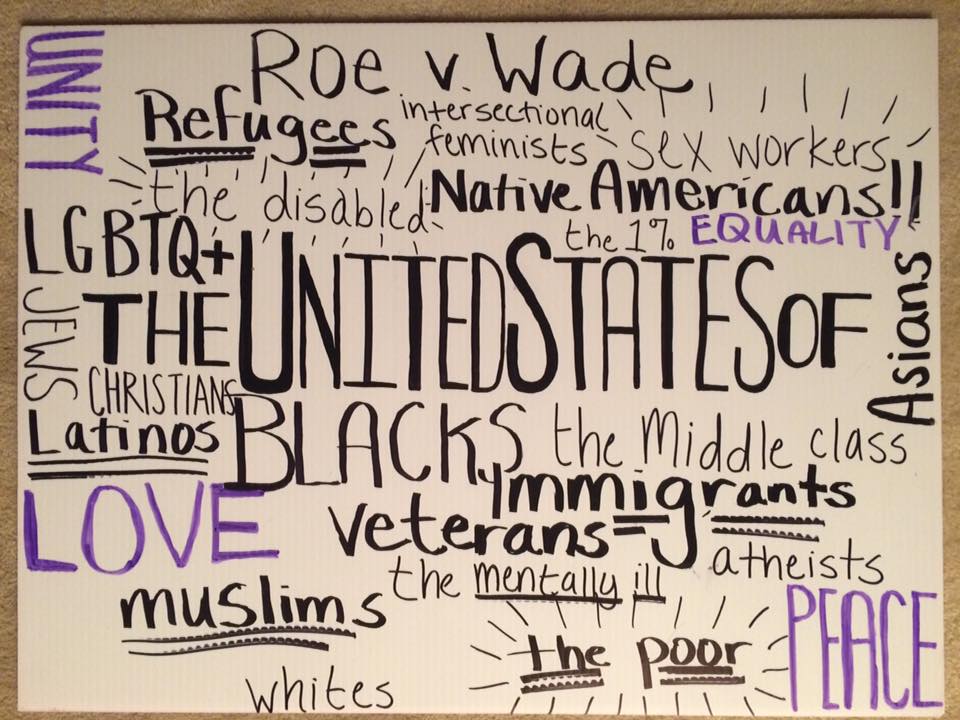 UNITY
Roe v. Wade
Refugees
intersectional
feminists
sex workers
the disabled
Native Americans!!
LGBTQ+
the 1%
EQUALITY
JEWS
THE UNITED STATES OF
Asians
CHRISTIANS
Latinos
BLACKS
the Middle class
Immigrants
LOVE
veterans
atheists
the mentally ill
muslims
the poor
PEACE
whites